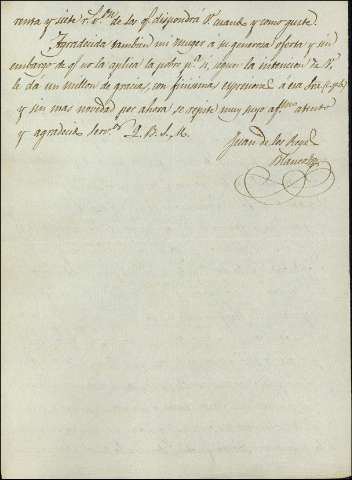 renta y siete r.s v.on de los q.e dispondrá V. cuando y como guste.
Agradecida tambien mi muger a su generosa oferta y sin
embargo de q.e no la aplica la pobre p.a si, sigue la intencion de V.
le da un millon de gracias, con finisimas espresiones á esa Sra
y sin mas novedad por ahora se repite muy suyo af.mo atento
y agradecid. serv.or Q. B. S. M.
Juan de los Reyes